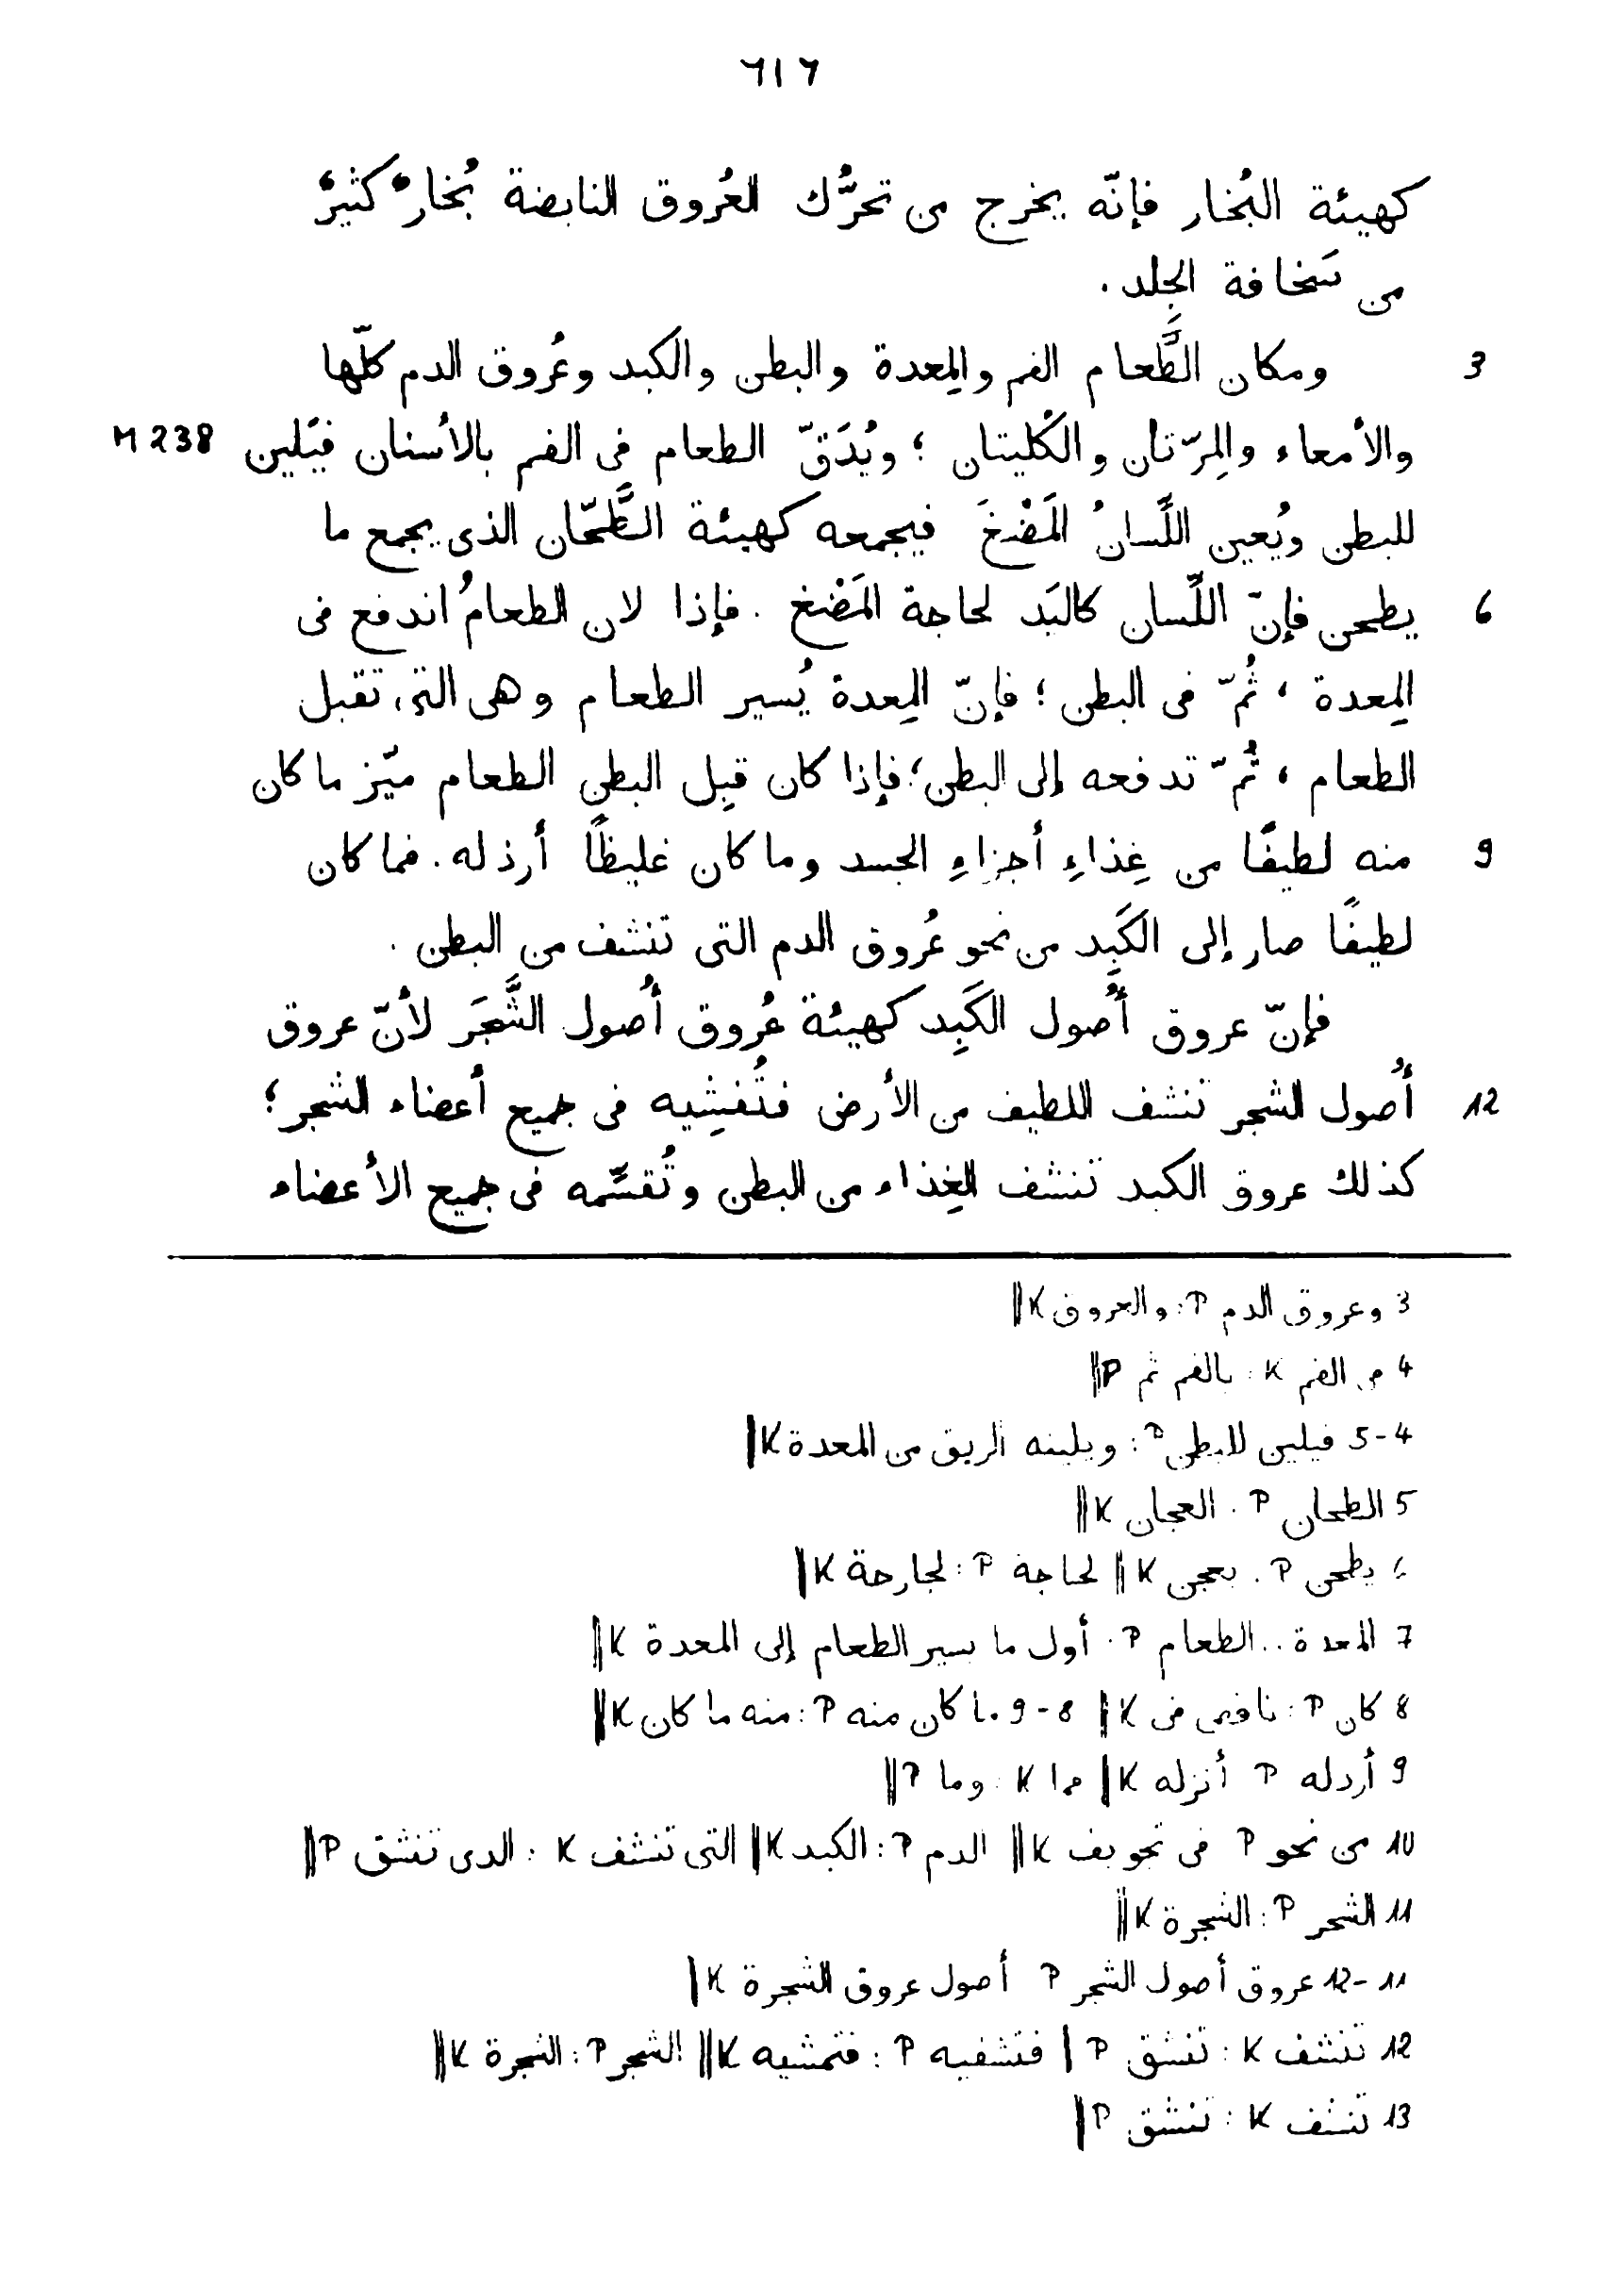 ٦١٦
كهيئة البُخار فإنّه يخرج من تحرُّك العُروق النابضة بُخارٌ كثيرٌ
من سَخافة الجِلد .
3 ومكان الطَّعام الفم والمِعدة والبطن والكبد وعُروق الدم كلّها
والأمعاء والمِرّتان والكُليتان ؛ ويُدَقّ الطعام فى الفم بالأسنان فيَلين M 238
للبطن ويُعين اللِّسانُ المَضْغَ فيجمعه كهيئة الطَّحّان الذى يجمع ما
6 يطحن فإنّ اللِّسان كاليَد لحاجة المَضْغ . فإذا لان الطعامُ اندفع فى
المِعدة ، ثُمّ فى البطن ؛ فإنّ المِعدة يُسير الطعام وهى التى تقبل
الطعام ، ثُمّ تدفعه إلى البطن ؛ فإذا كان قبِل البطن الطعام ميّز ما كان
9 منه لطيفًا من غِذاءِ أجزاءِ الجسد وما كان غليظًا أرذله . فما كان
لطيفًا صار إلى الكَبِد من نحو عُروق الدم التى تنشف من البطن .
فإنّ عروق أُصول الكَبِد كهيئة عُروق أُصول الشَّجَر لأنّ عروق
12 أُصول الشجر تنشف اللطيف من الأرض فتُفشِيه فى جميع أعضاء الشجر ؛
كذلك عروق الكبد تنشف الغِذاء من البطن وتُقسِّمه فى جميع الأعضاء
3 وعروق الدم P : والعروق K ||
4 فى الفم K : بالفم ثم P ||
4-5 فيلين للبطن P : ويلينه الريق من المعدة K ||
5 الطحان P : العجان K ||
6 يطحن P : يعجن K || لحاجة P : لجارحة K ||
7 المعدة .. الطعام P : أول ما يسير الطعام إلى المعدة K ||
8 كان P : K || 8-9 ما كان منه P : منه ما كان K ||
9 أرذله P أنزله K || فما K : وما P ||
10 من نحو P فى تجويف K || الدم P : الكبد K || التى تنشف K : الدى تنشق P ||
11 الشجر P : الشجرة K ||
11-12 عروق أصول الشجر P أصول عروق الشجرة K ||
12 تنشف K : تنشق P || فتشفيه P : فتمشيه K || الشجر P : الشجرة K ||
13 تنشف K : تنشق P ||